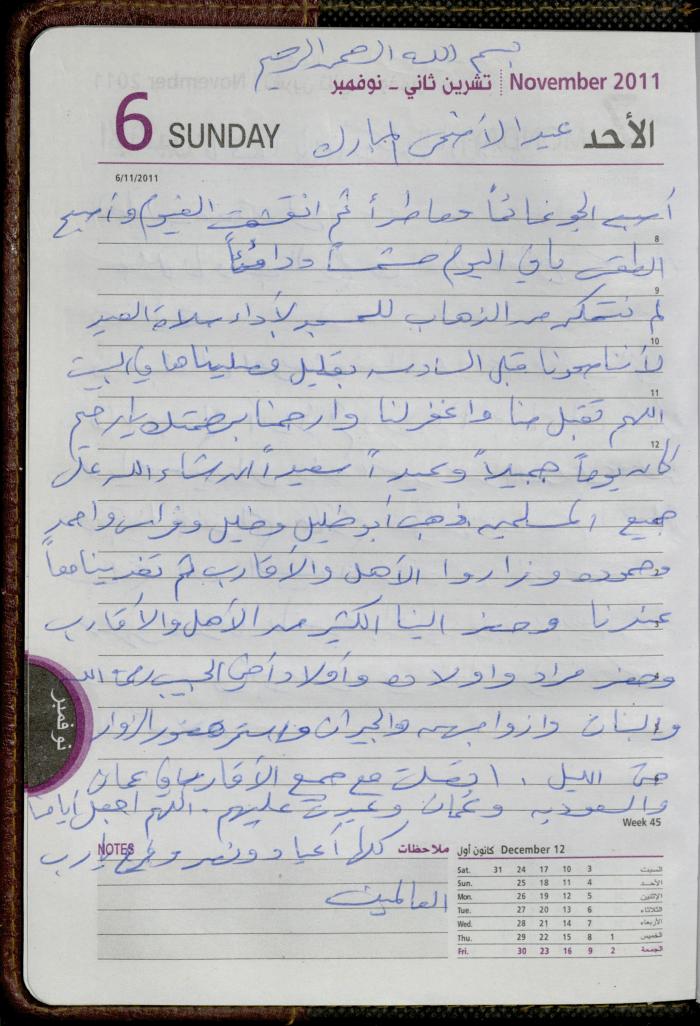 بسم الله الرحمن الرحيم
November 2011 تشرين ثاني - نوفمبر
6 SUNDAY عيد الأضحى المبارك الأحد
6/11/2011
أصبح الجو غائماً وماطراً ثم انقشعت الغيوم وأصبح
8
الطقس باقي اليوم مشمساً ودافئاً
9
لم نتمكن من الذهاب للمسجد لأداء صلاة العيد
10
لأننا صحونا قبل السادسه بقليل وصليناها في البيت
11
اللهم تقبل منا واغفر لنا وارحمنا برحمتك يا رحيم
12
كان يوماً جميلاً وعيداً سعيداً ان شاء الله على
جميع المسلمين ذهب أبو خليل وخليل وفراس واحمد
وحموده وزاروا الأهل والأقارب ثم تغدينا معاً
عندنا وحضر الينا الكثير من الأهل والأقارب
وحضر مراد واولاده وأولاد أخي الحبيب رحمة الله
والبنات وازواجهن والجيران واستمر حضور الزوار
حتى الليل . اتصلت مع جميع الأقارب في عمان
والسعوديه وعُمان وعيدت عليهم . اللهم اجعل أيامنا
Week 45
NOTES ملاحظات كلها أعياد ونصر وفرح يا رب
العالمين
December 12 كانون أول
Sat. 31 24 17 10 3 السبت
Sun. 25 18 11 4 الأحد
Mon. 26 19 12 5 الإثنين
Tue. 27 20 13 6 الثلاثاء
Wed. 28 21 14 7 الأربعاء
Thu. 29 22 15 8 1 الخميس
Fri. 30 23 16 9 2 الجمعة
نوفمبر